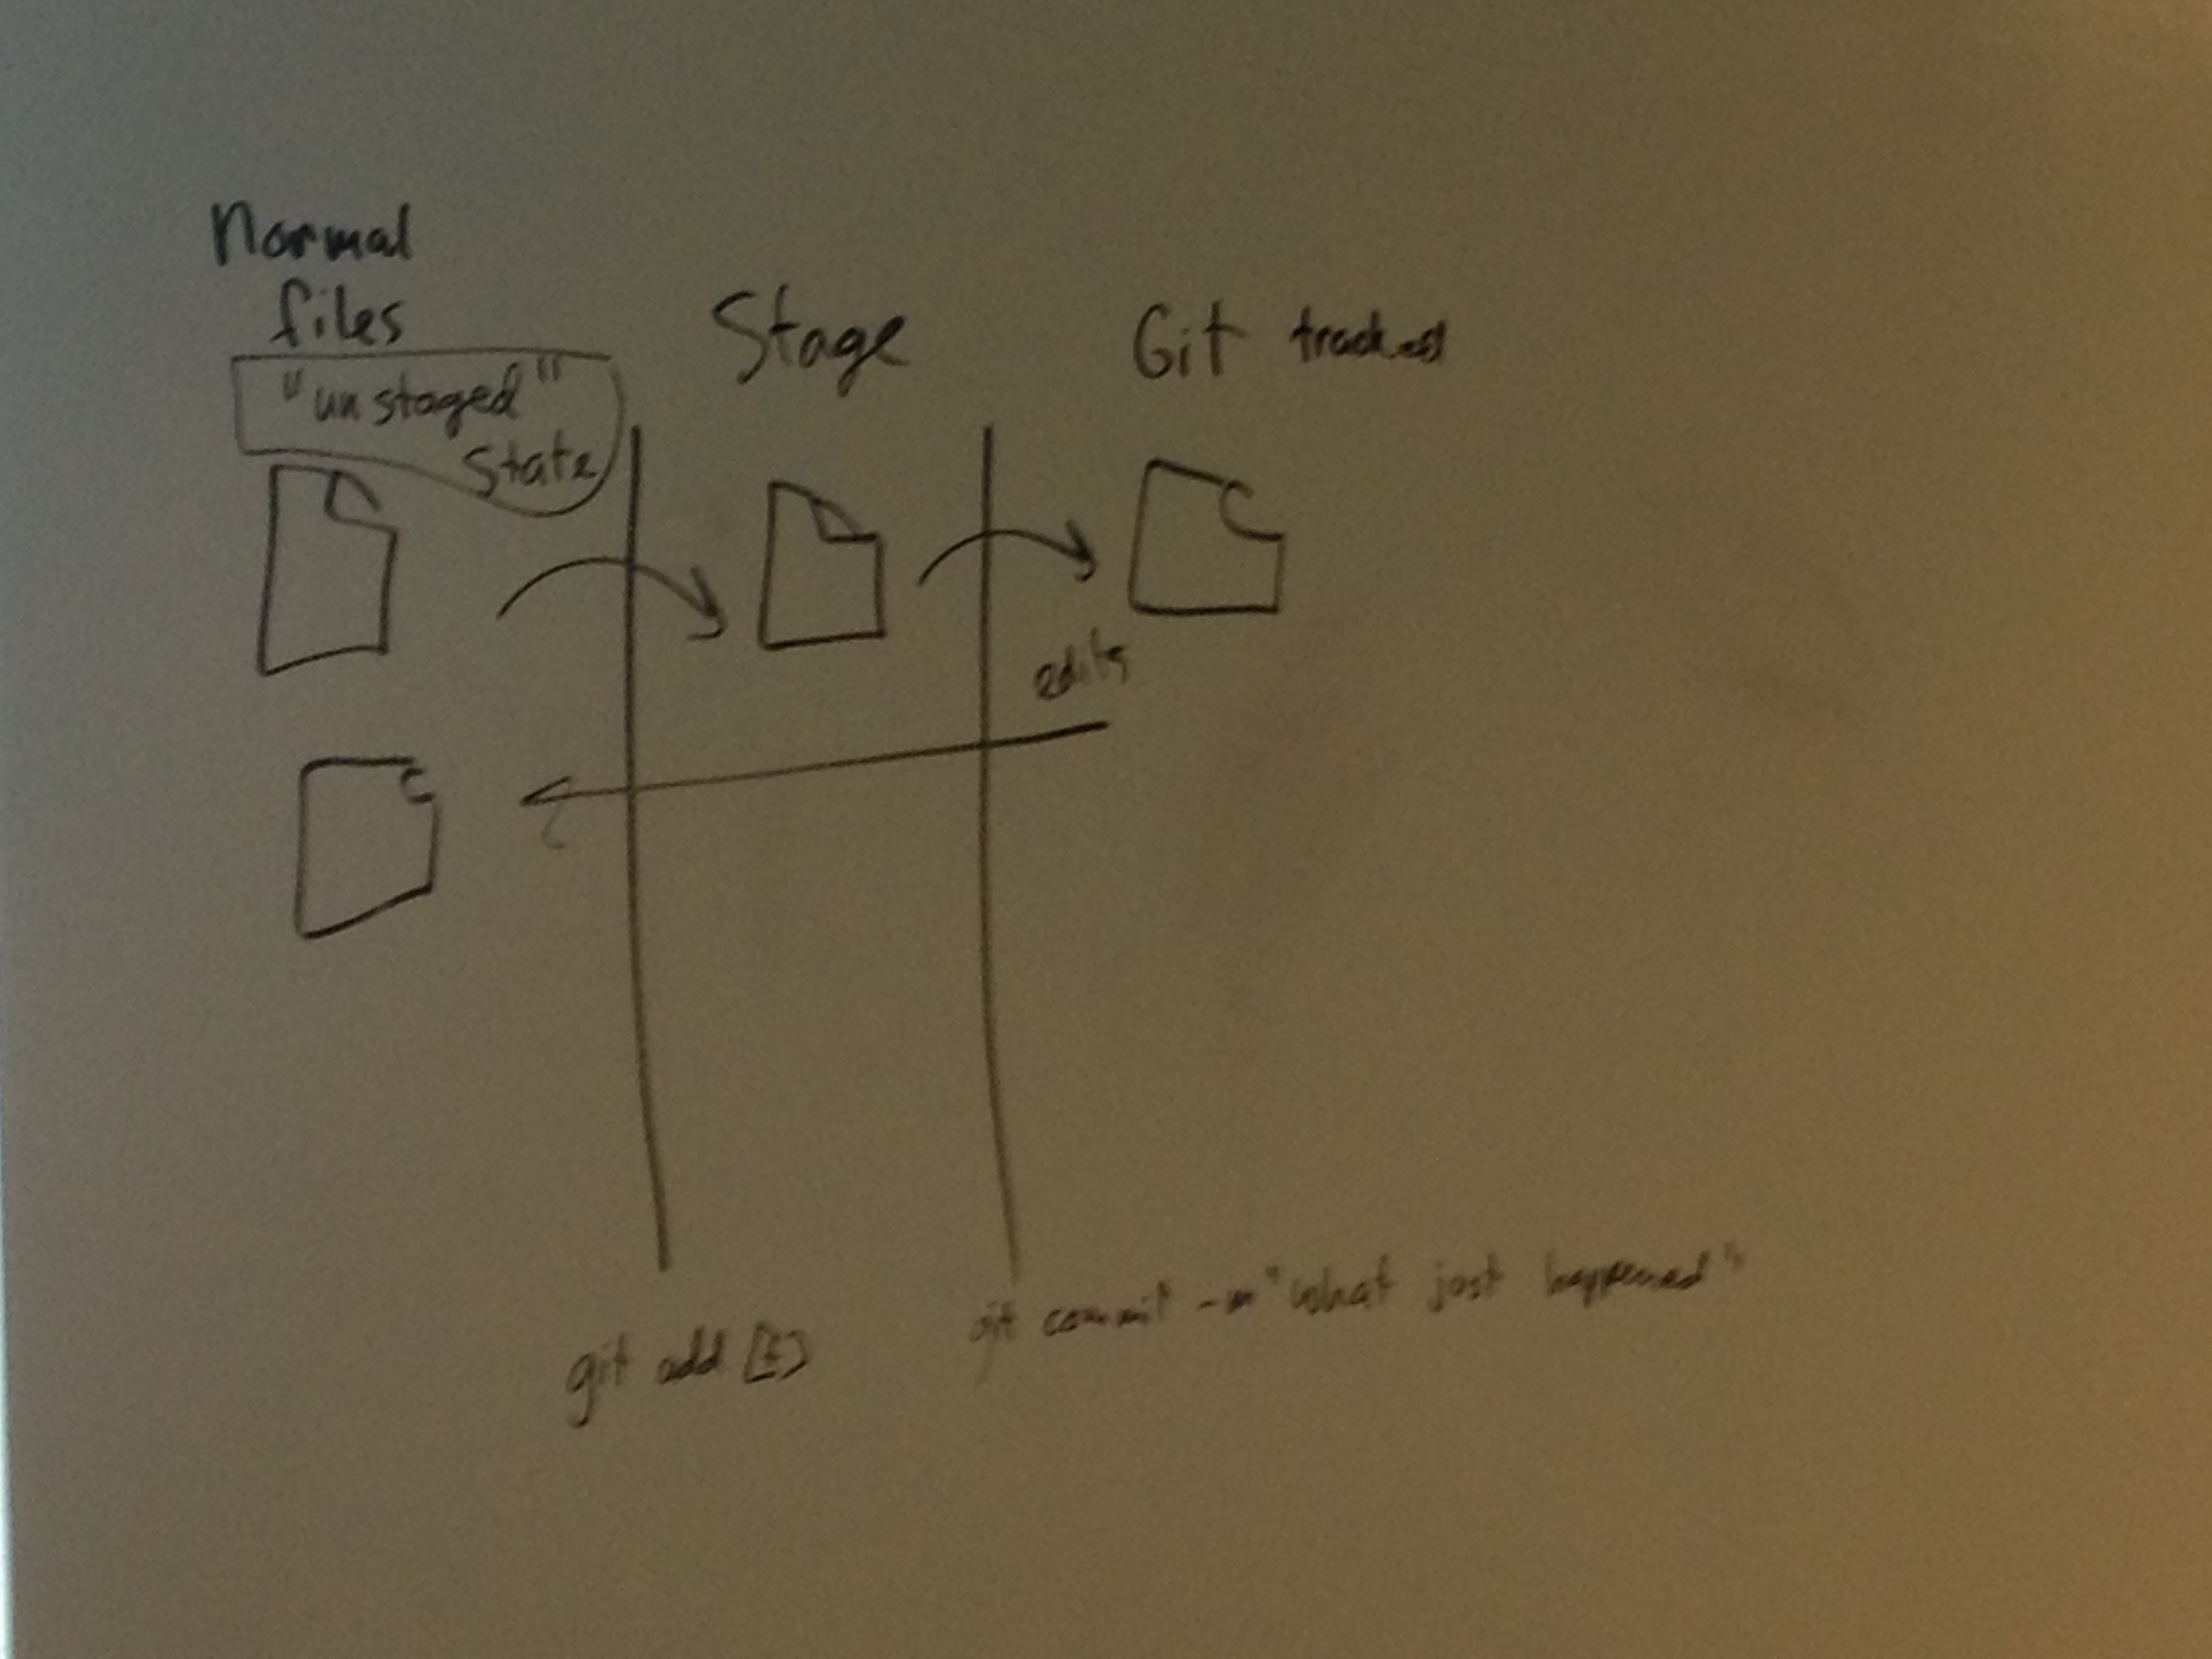 Normal
files
"unstaged"
State
Stage
Git tracked
edits
git add
git commit -m "what just happened"